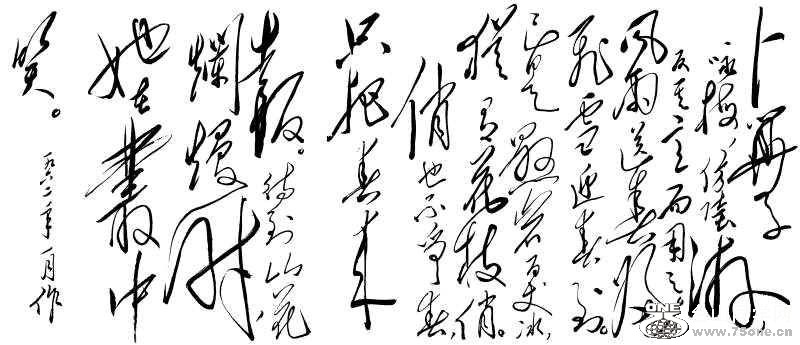 卜算子
咏梅、仿陸游
反其意而用之
风雨送春归
飛雪迎春到。
已是懸岩百丈冰,
犹有花枝俏。
俏也不争春,
只把春来
報。待到山花
爛熳时
她在叢中
笑。
一九六二年一月作
ONE
www.75one.cn